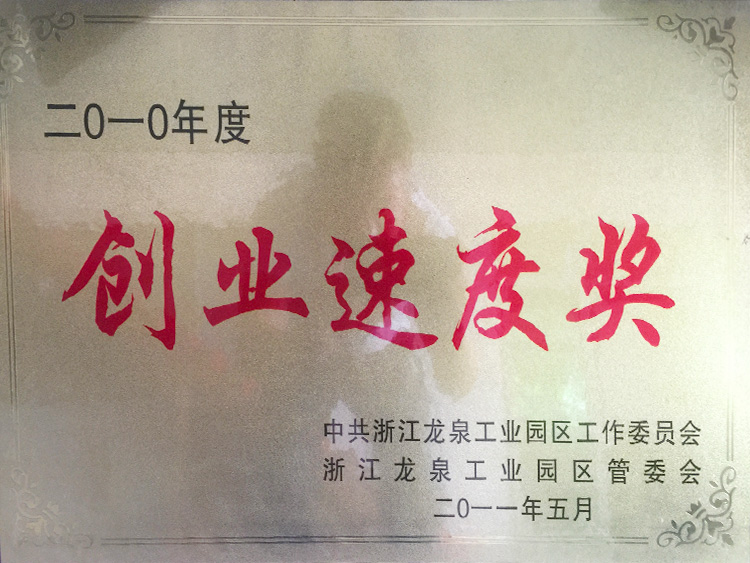 二0一0年度
创业速度奖
中共浙江龙泉工业园区工作委员会
浙江龙泉工业园区管委会
二0一一年五月